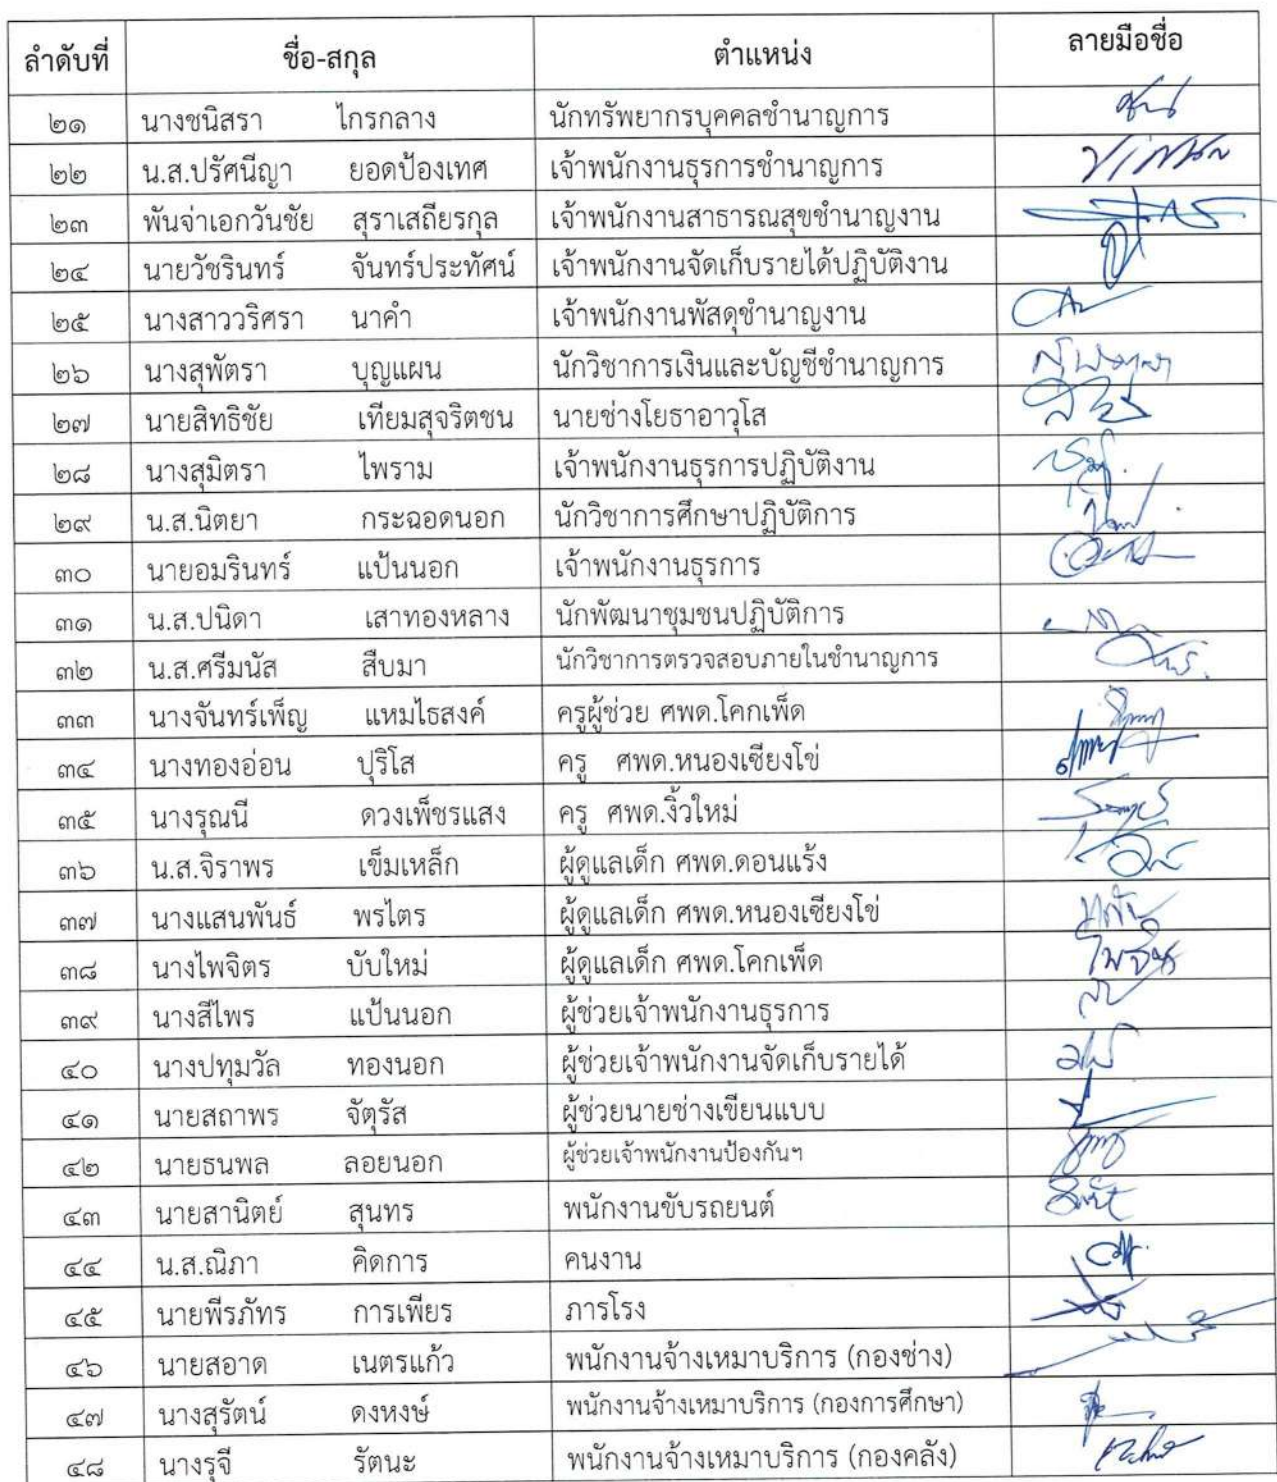 ลำดับที่ ชื่อ-สกุล ตำแหน่ง ลายมือชื่อ
๒๑ นางชนิสรา ไกรกลาง นักทรัพยากรบุคคลชำนาญการ
๒๒ น.ส.ปรัศนีญา ยอดป้องเทศ เจ้าพนักงานธุรการชำนาญการ
๒๓ พันจ่าเอกวันชัย สุราเสถียรกุล เจ้าพนักงานสาธารณสุขชำนาญงาน
๒๔ นายวัชรินทร์ จันทร์ประทัศน์ เจ้าพนักงานจัดเก็บรายได้ปฏิบัติงาน
๒๕ นางสาววริศรา นาคำ เจ้าพนักงานพัสดุชำนาญงาน
๒๖ นางสุพัตรา บุญแผน นักวิชาการเงินและบัญชีชำนาญการ
๒๗ นายสิทธิชัย เทียมสุจริตชน นายช่างโยธาอาวุโส
๒๘ นางสุมิตรา ไพราม เจ้าพนักงานธุรการปฏิบัติงาน
๒๙ น.ส.นิตยา กระฉอดนอก นักวิชาการศึกษาปฏิบัติการ
๓๐ นายอมรินทร์ แป้นนอก เจ้าพนักงานธุรการ
๓๑ น.ส.ปนิดา เสาทองหลาง นักพัฒนาชุมชนปฏิบัติการ
๓๒ น.ส.ศรีมนัส สืบมา นักวิชาการตรวจสอบภายในชำนาญการ
๓๓ นางจันทร์เพ็ญ แหมไธสงค์ ครูผู้ช่วย ศพด.โคกเพ็ด
๓๔ นางทองอ่อน ปุริโส ครู ศพด.หนองเซียงโข่
๓๕ นางรุณนี ดวงเพ็ชรแสง ครู ศพด.งิ้วใหม่
๓๖ น.ส.จิราพร เข็มเหล็ก ผู้ดูแลเด็ก ศพด.ดอนแร้ง
๓๗ นางแสนพันธ์ พรไตร ผู้ดูแลเด็ก ศพด.หนองเซียงโข่
๓๘ นางไพจิตร บับใหม่ ผู้ดูแลเด็ก ศพด.โคกเพ็ด
๓๙ นางสีไพร แป้นนอก ผู้ช่วยเจ้าพนักงานธุรการ
๔๐ นางปทุมวัล ทองนอก ผู้ช่วยเจ้าพนักงานจัดเก็บรายได้
๔๑ นายสถาพร จัตุรัส ผู้ช่วยนายช่างเขียนแบบ
๔๒ นายธนพล ลอยนอก ผู้ช่วยเจ้าพนักงานป้องกันฯ
๔๓ นายสานิตย์ สุนทร พนักงานขับรถยนต์
๔๔ น.ส.ณิภา คิดการ คนงาน
๔๕ นายพีรภัทร การเพียร ภารโรง
๔๖ นายสอาด เนตรแก้ว พนักงานจ้างเหมาบริการ (กองช่าง)
๔๗ นางสุรัตน์ ดงหงษ์ พนักงานจ้างเหมาบริการ (กองการศึกษา)
๔๘ นางรุจี รัตนะ พนักงานจ้างเหมาบริการ (กองคลัง)